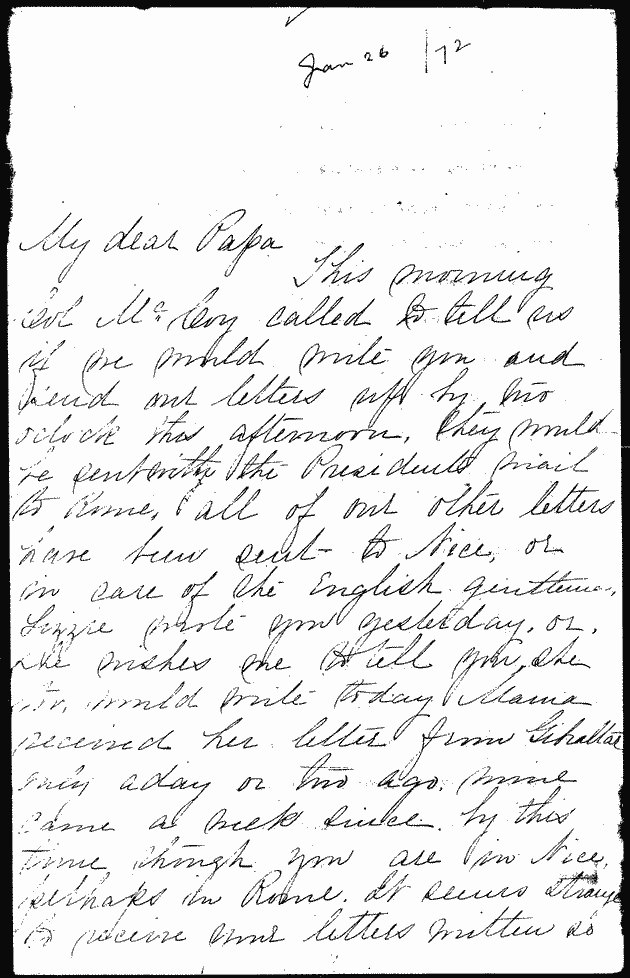 Jan 26 /72
My dear Papa
This morning
Col Mc. Coy called to tell us
if we would write you and
send our letters up by two
oclock this afternoon, they would
be sent with the Presidents mail
to Rome, all of our other letters
have been sent to Nice, or
in care of the English gentleman,
Lizzie wrote you yesterday, or,
she wishes me to tell you, she
would write today Mama
received her letter from Gibraltar
only a day or two ago. mine
came a week since. by this
time though you are in Nice,
perhaps in Rome. It seems strange
to receive your letters written so